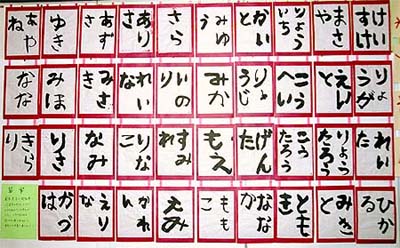 けいすけ
まさや
りょういち
かいと
みゆう
さら
ありさ
あずさ
ゆき
あやね
りょうが
えいと
こうへい
りゅうじ
みか
いのり
れいな
みさき
みほ
なな
れいた
りょうたろう
こうたろう
げんた
もえ
すみれ
なみ
りさ
きらり
ひかる
ともき
ななか
もも
えみ
えりな
かづは